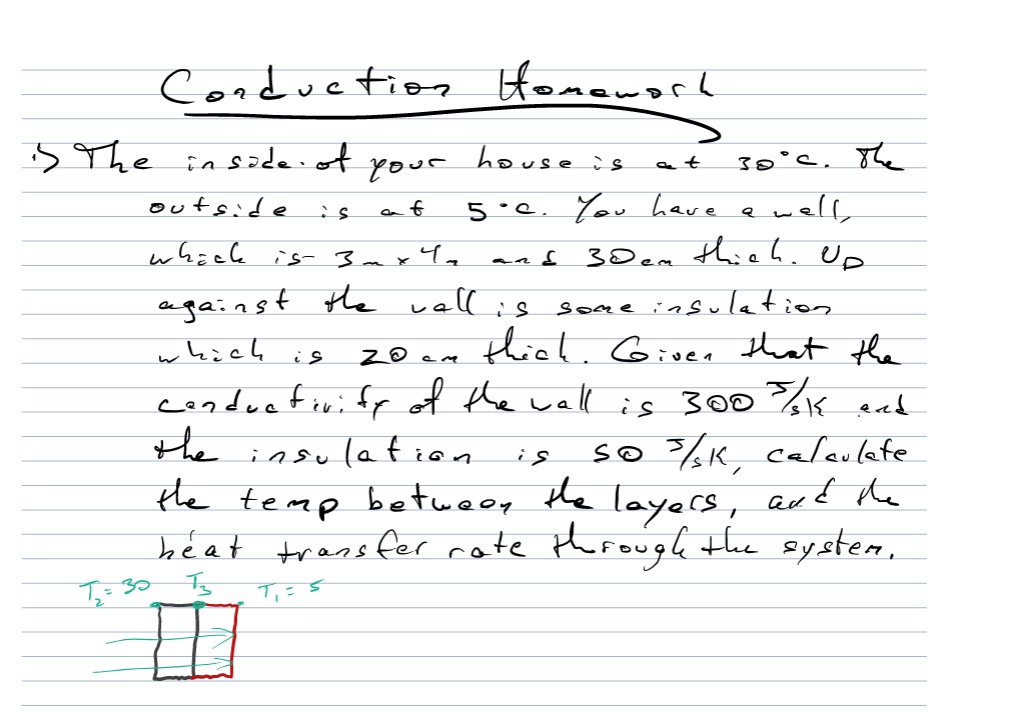 Conduction Homework
1) The inside of your house is at 30°C. The
outside is at 5°C. You have a wall,
which is 3m x 4m and 30cm thick. Up
against the wall is some insulation
which is 20 cm thick. Given that the
conductivity of the wall is 300 J/sK and
the insulation is 50 J/sK, calculate
the temp between the layers, and the
heat transfer rate through the system.
T₂ = 30 T₃ T₁ = 5